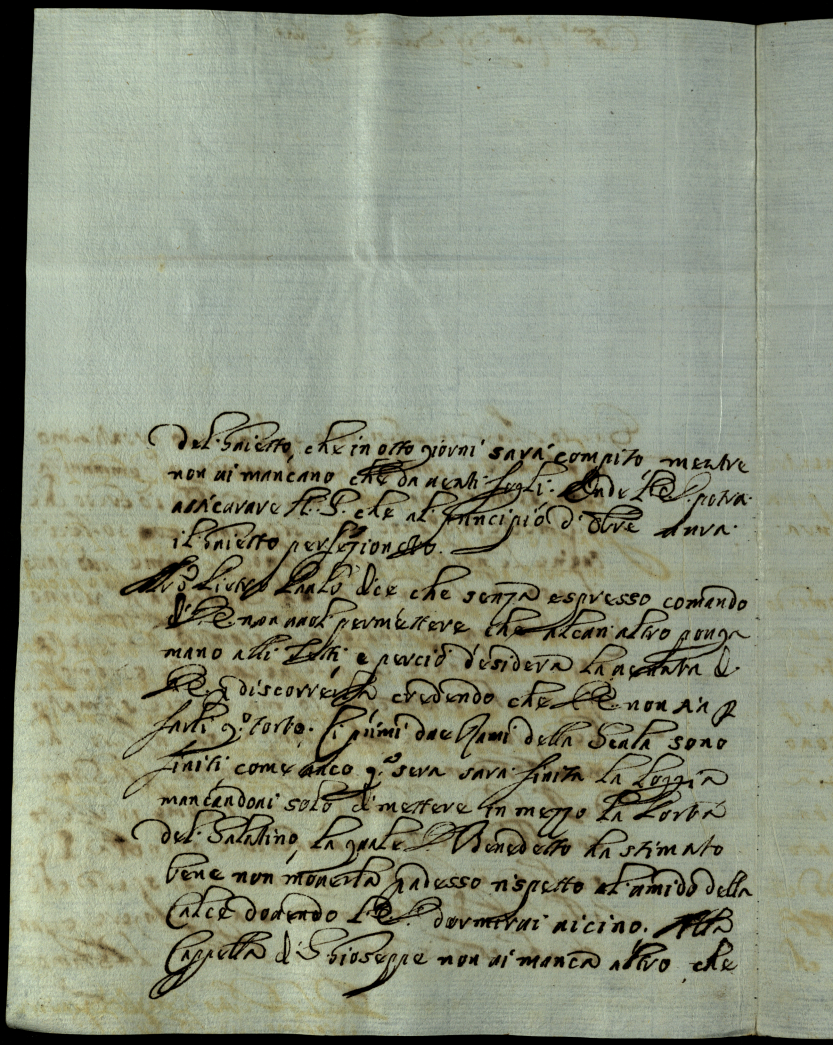 del Gaietto, che in otto giorni sarà compito mentre
non ui mancano che da uenti fogli. Onde V.E. potra
assicurare che al principio d'8bre aura
il Gaietto perfezionato.
Pietro Paolo dice che senza espresso comando
di V.E. non uuol permettere che alcun altro ponga
mano alli e perciò desidera la uenuta di
V.E. p discorrerla credendo che V.E. non sia p
farli q.o torto. Li primi due Rami della Scala sono
finiti come anco q.a sera sarà finita la loggia
mancandoui solo di mettere in mezzo la Porta
del Salotino, la quale D. Benedetto ha stimato
bene non mouerla p adesso rispetto al umido della
Calce douendo V.E. dormirui uicino. Alla
Cappella di S. Gioseppe non ui manca altro che